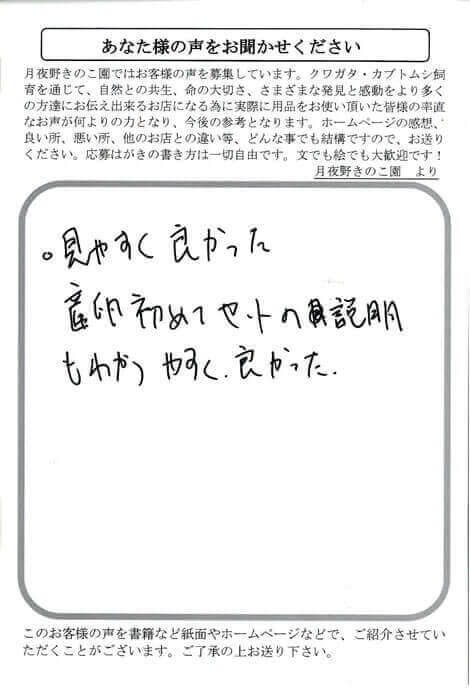 あなた様の声をお聞かせください
月夜野きのこ園ではお客様の声を募集しています。クワガタ・カブトムシ飼
育を通じて、自然との共生、命の大切さ、さまざまな発見と感動をより多く
の方達にお伝え出来るお店になる為に実際に用品をお使い頂いた皆様の率直
なお声が何よりの力となり、今後の参考となります。ホームページの感想、
良い所、悪い所、他のお店との違い等、どんな事でも結構ですので、お送り
ください。応募はがきの書き方は一切自由です。文でも絵でも大歓迎です！
月夜野きのこ園　より
。見やすく 良かった
産卵初めてセットの説明
もわかりやすく.良かった.
このお客様の声を書籍など紙面やホームページなどで、ご紹介させてい
ただくことがございます。ご了承の上お送り下さい。